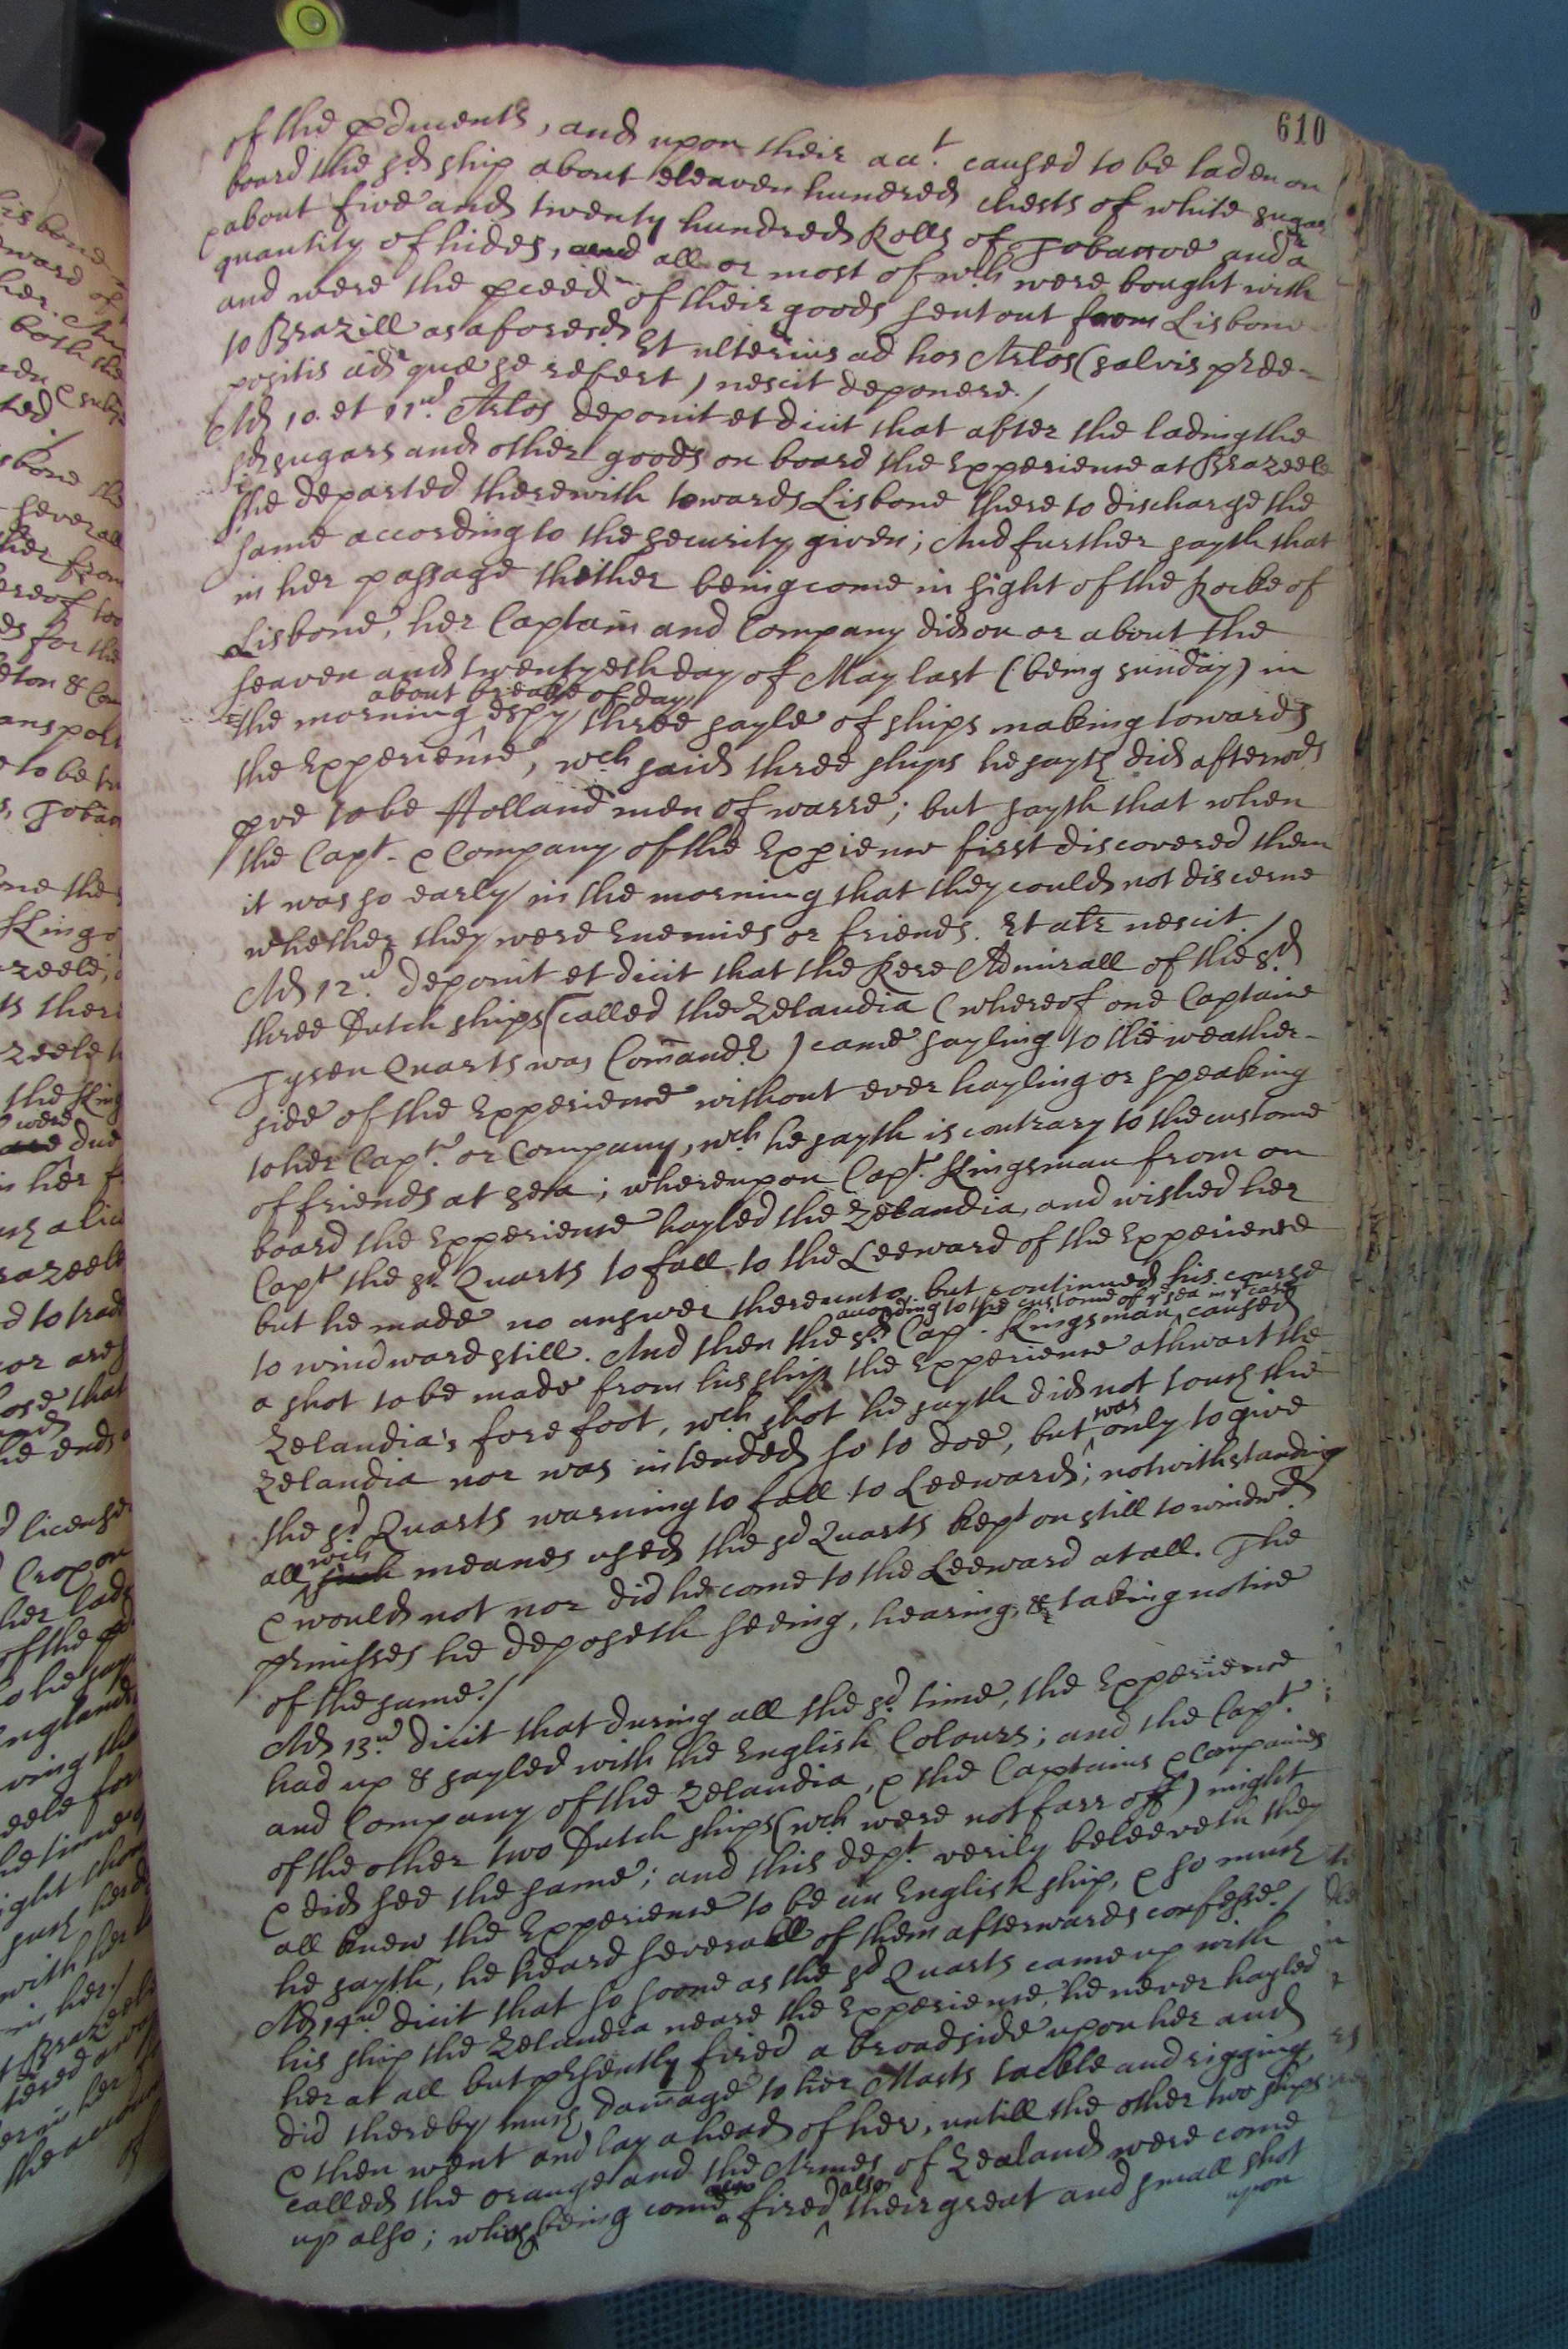 610
of the pducents, and upon their acct. caused to be laden on
board the sd ship about eleaven hundred chests of white sugar
about five and twenty hundred Rolls of Tobaccoe and a
quantity of hides, and all or most of wch were bought with
and were the pceed of their goods sent out from Lisbone
to Brazill as aforesd. Et ulterius ad hos Arlos (salvis prde=
positis ad quæ se refert) nescit deponere./
Ad 10. et 11ud. Arlos deponit et dicit that after the lading the
sd sugars and other goods on board the Experience at Brazeele
she departed therewith towards Lisbone there to discharge the
same according to the security given; And further sayth that
in her passage thither being come in sight of the Rocke of
Lisbone, her Captain and Company did on or about the
seaven and twentyeth day of May last (being sunday) in
about breake of day
the morning espy three sayle of ships making towards
the Experience, wch said three ships he sayth did afterwds
pve to be Holland men of warre; but sayth that when
the Capt. & Company of the Expience first discovered them
it was so early in the morning that they could not discerne
whether they were Enemies or friends. Et alr nescit./
Ad 12ud. deponit et dicit that the Rere Admirall of the sd.
three Dutch ships (called the Zelandia (whereof one Captaine
Tysen Quarts was Comandr) came sayling to the weather-
side of the Experience without ever hayling or speaking
to her Capt. or Company, wch he sayth is contrary to the custome
of friends at sea; whereupon Capt. Kingsman from on
board the Experience hayled the Zelandia, and wished her
Capt the sd Quarts to fall to the Leeward of the Experience
but he made no answer thereunto but continued his course
according to the custome of ye sea in yt case
to windward still. And then the sd Capt. Kingsman caused
a shot to be made from his ship the Experience athwart the
Zelandia's fore foot, wch shot he sayth did not touch the
was
Zelandia nor was intended so to doe, but only to give
the sd Quarts warning to fall to Leeward; notwithstanding
wch
all such meanes used the sd Quarts kept on still to windwd
& would not nor did he come to the Leeward at all. The
prmisses he deposeth seeing, hearing, & taking notice
of the same./
Ad 13ud. dicit that during all the sd. time, the Experience
had up & sayled with the English Colours; and the Capt.
and Company of the Zelandia, & the Captains & Companies
of the other two Dutch ships (wch were not farr off) might
& did see the same; and this dept. verily beleeveth they
all knew the Experience to be an English ship, & so much
he sayth, he heard severall of them afterwards confesse./
Ad 14ud dicit that so soone as the sd Quarts came up with
his ship the Zelandia neare the Experience, he never hayled
her at all but prsently fired a broadside upon her and
did thereby much damage to her Masts tackle and rigging,
& then went and lay ahead of her, untill the other two ships
called the Orange and the Armes of Zealand were come
also
up also; which being come fired their great and small shot
upon